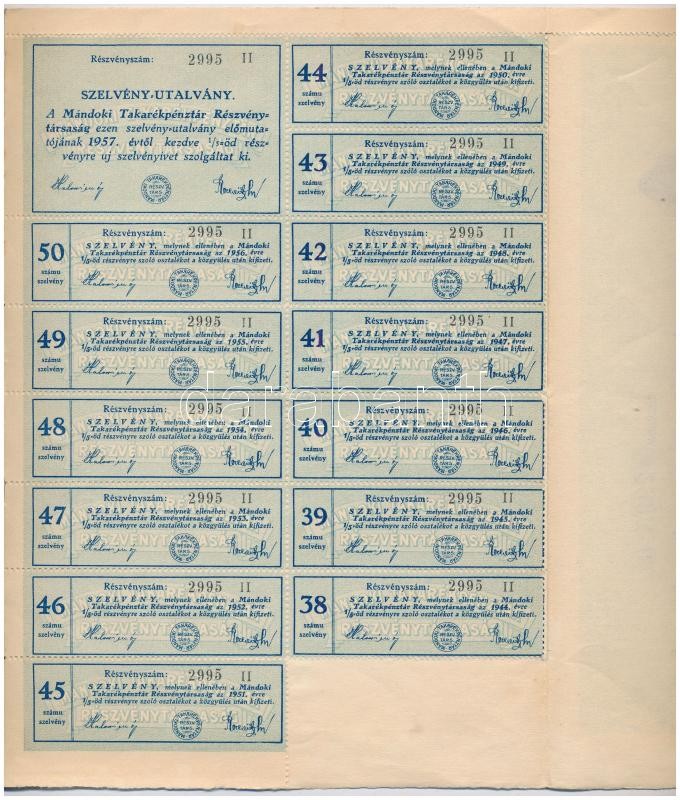 Részvényszám: 2995 II
SZELVÉNY-UTALVÁNY.
A Mándoki Takarékpénztár Részvény-
társaság ezen szelvény-utalvány előmuta-
tójának 1957. évtől kezdve 1/5-öd rész-
vényre uj szelvényivet szolgáltat ki.
50
számu
szelvény
Részvényszám: 2995 II
SZELVÉNY, melynek ellenében a Mándoki
Takarékpénztár Részvénytársaság az 1956. évre
1/5-öd részvényre szoló osztalékot a közgyülés után kifizeti.
49
számu
szelvény
Részvényszám: 2995 II
SZELVÉNY, melynek ellenében a Mándoki
Takarékpénztár Részvénytársaság az 1955. évre
1/5-öd részvényre szoló osztalékot a közgyülés után kifizeti.
48
számu
szelvény
Részvényszám: 2995 II
SZELVÉNY, melynek ellenében a Mándoki
Takarékpénztár Részvénytársaság az 1954. évre
1/5-öd részvényre szoló osztalékot a közgyülés után kifizeti.
47
számu
szelvény
Részvényszám: 2995 II
SZELVÉNY, melynek ellenében a Mándoki
Takarékpénztár Részvénytársaság az 1953. évre
1/5-öd részvényre szoló osztalékot a közgyülés után kifizeti.
46
számu
szelvény
Részvényszám: 2995 II
SZELVÉNY, melynek ellenében a Mándoki
Takarékpénztár Részvénytársaság az 1952. évre
1/5-öd részvényre szoló osztalékot a közgyülés után kifizeti.
45
számu
szelvény
Részvényszám: 2995 II
SZELVÉNY, melynek ellenében a Mándoki
Takarékpénztár Részvénytársaság az 1951. évre
1/5-öd részvényre szoló osztalékot a közgyülés után kifizeti.
44
számu
szelvény
Részvényszám: 2995 II
SZELVÉNY, melynek ellenében a Mándoki
Takarékpénztár Részvénytársaság az 1950. évre
1/5-öd részvényre szoló osztalékot a közgyülés után kifizeti.
43
számu
szelvény
Részvényszám: 2995 II
SZELVÉNY, melynek ellenében a Mándoki
Takarékpénztár Részvénytársaság az 1949. évre
1/5-öd részvényre szoló osztalékot a közgyülés után kifizeti.
42
számu
szelvény
Részvényszám: 2995 II
SZELVÉNY, melynek ellenében a Mándoki
Takarékpénztár Részvénytársaság az 1948. évre
1/5-öd részvényre szoló osztalékot a közgyülés után kifizeti.
41
számu
szelvény
Részvényszám: 2995 II
SZELVÉNY, melynek ellenében a Mándoki
Takarékpénztár Részvénytársaság az 1947. évre
1/5-öd részvényre szoló osztalékot a közgyülés után kifizeti.
40
számu
szelvény
Részvényszám: 2995 II
SZELVÉNY, melynek ellenében a Mándoki
Takarékpénztár Részvénytársaság az 1946. évre
1/5-öd részvényre szoló osztalékot a közgyülés után kifizeti.
39
számu
szelvény
Részvényszám: 2995 II
SZELVÉNY, melynek ellenében a Mándoki
Takarékpénztár Részvénytársaság az 1945. évre
1/5-öd részvényre szoló osztalékot a közgyülés után kifizeti.
38
számu
szelvény
Részvényszám: 2995 II
SZELVÉNY, melynek ellenében a Mándoki
Takarékpénztár Részvénytársaság az 1944. évre
1/5-öd részvényre szoló osztalékot a közgyülés után kifizeti.
darabanth